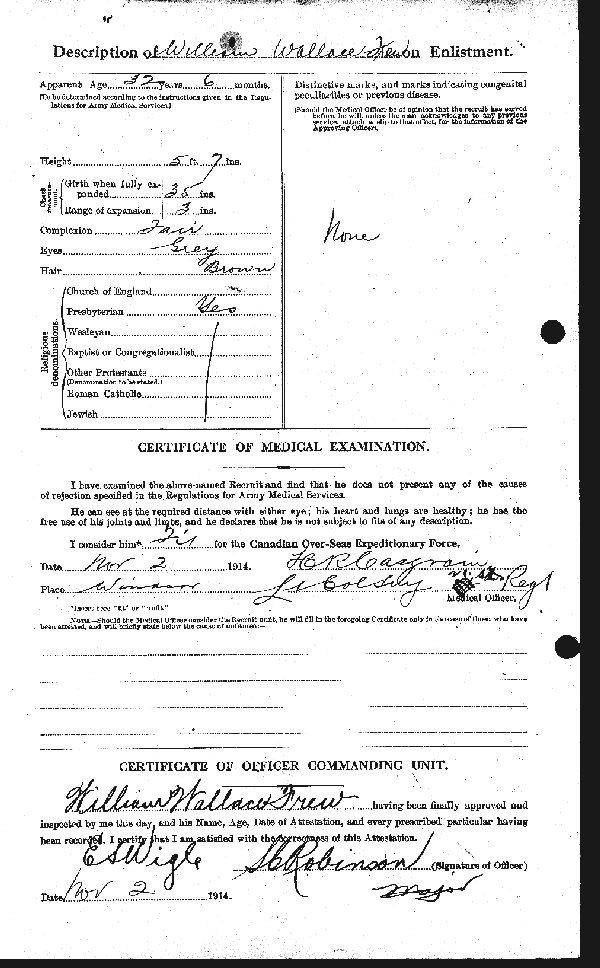 Description of William Wallace Frew on Enlistment.
Apparent Age 32 years 6 months.
(To be determined according to the instructions given in the Regulations for Army Medical Services.)
Height 5 ft. 7 ins.
Chest measurement.
Girth when fully expanded 35 ins.
Range of expansion 3 ins.
Complexion Fair
Eyes Grey
Hair Brown
Religious denominations.
Church of England
Presbyterian Yes
Wesleyan
Baptist or Congregationalist
Other Protestants
(Denomination to be stated.)
Roman Catholic
Jewish
Distinctive marks, and marks indicating congenital
peculiarities or previous disease.
(Should the Medical Officer be of opinion that the recruit has served
before, he will, unless the man acknowledges to any previous
service, attach a slip to that effect, for the information of the
Approving Officer).
None
CERTIFICATE OF MEDICAL EXAMINATION.
I have examined the above-named Recruit and find that he does not present any of the causes
of rejection specified in the Regulations for Army Medical Services.
He can see at the required distance with either eye; his heart and lungs are healthy; he has the
free use of his joints and limbs, and he declares that he is not subject to fits of any description.
I consider him* Fit for the Canadian Over-Seas Expeditionary Force.
Date Nov 2 1914. H R Casgrain
Place Windsor Lt Col Regt
Medical Officer.
*Insert here "fit" or "unfit."
NOTE.—Should the Medical Officer consider the Recruit unfit, he will fill in the foregoing Certificate only in the case of those who have
been attested, and will briefly state below the cause of unfitness:—
CERTIFICATE OF OFFICER COMMANDING UNIT.
William Wallace Frew having been finally approved and
inspected by me this day, and his Name, Age, Date of Attestation, and every prescribed particular having
been recorded, I certify that I am satisfied with the correctness of this Attestation.
E S Wigle S C Robinson (Signature of Officer)
Major
Date Nov 2 1914.